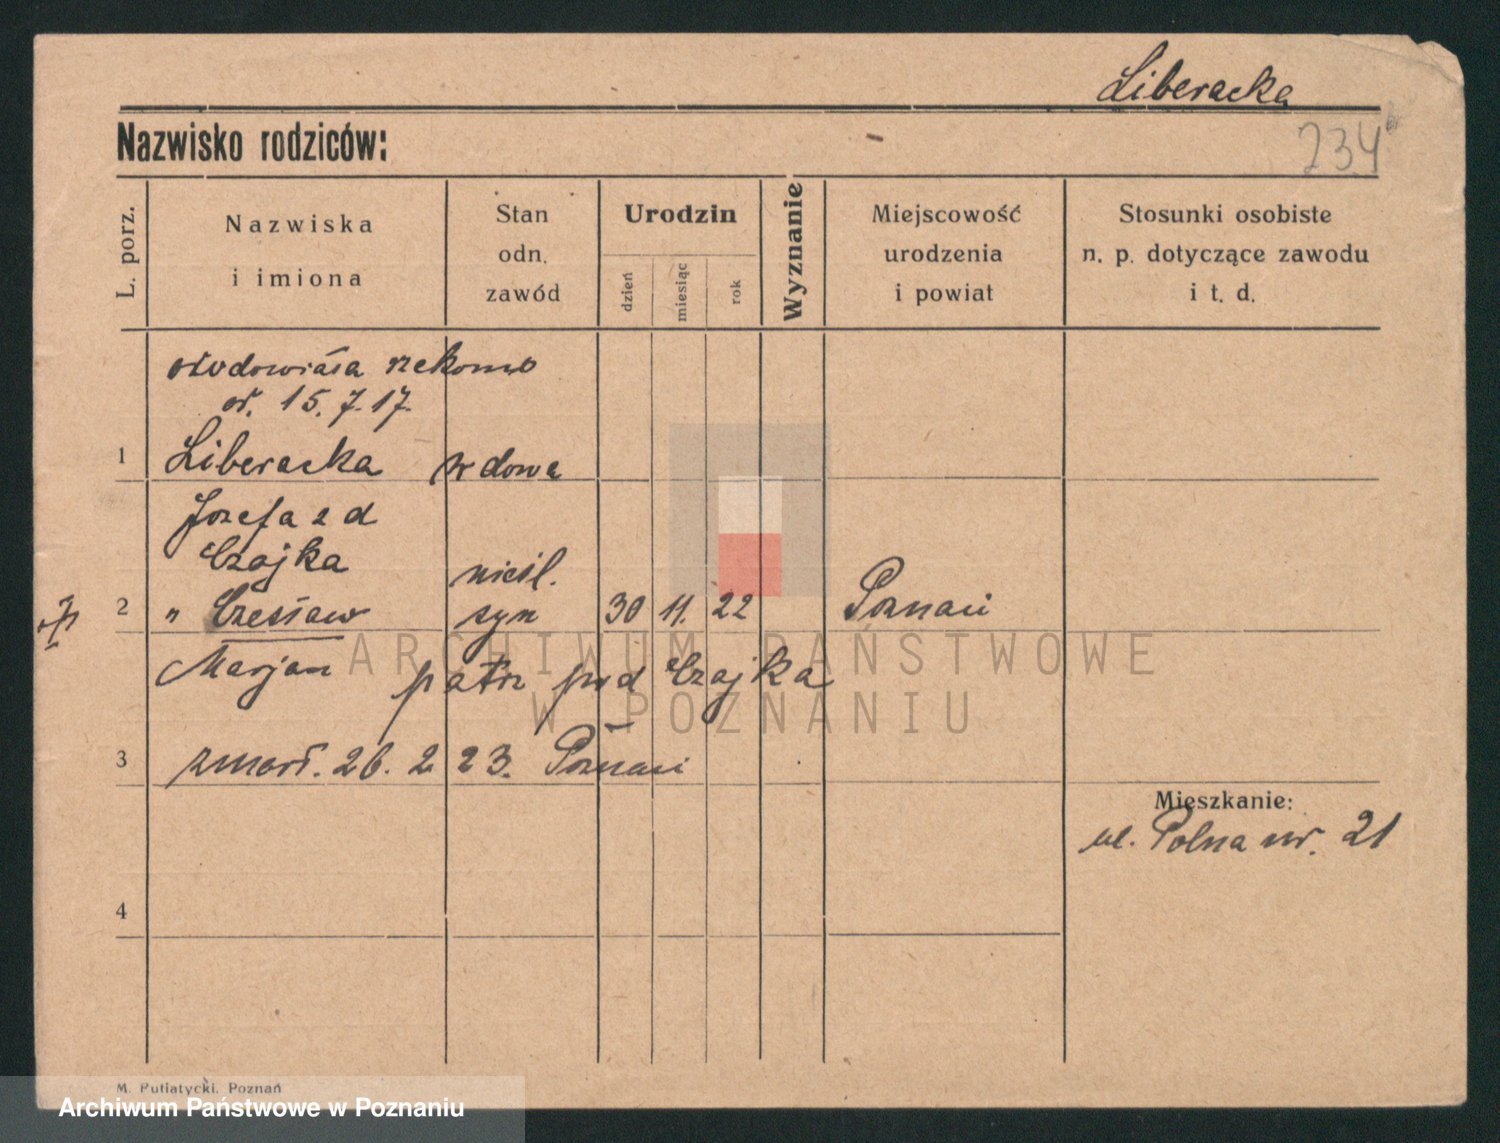 Liberacka
Nazwisko rodziców:
234
L. porz.
Nazwiska
i imiona
Stan
odn.
zawód
Urodzin
dzień
miesiąc
rok
Wyznanie
Miejscowość
urodzenia
i powiat
Stosunki osobiste
n. p. dotyczące zawodu
i t. d.
owdowiała rzekomo
15. 7. 17.
1 Liberacka wdowa
Józefa z d
Czajka
2 " Czesław nieśl. syn 30 11. 22 Poznań
Marjan patrz pod Czajka
3 zmarł. 26. 2 23. Poznań
Mieszkanie:
ul. Polna nr. 21
4
ARCHIWUM PAŃSTWOWE
W POZNANIU
M. Putiatycki. Poznań
Archiwum Państwowe w Poznaniu